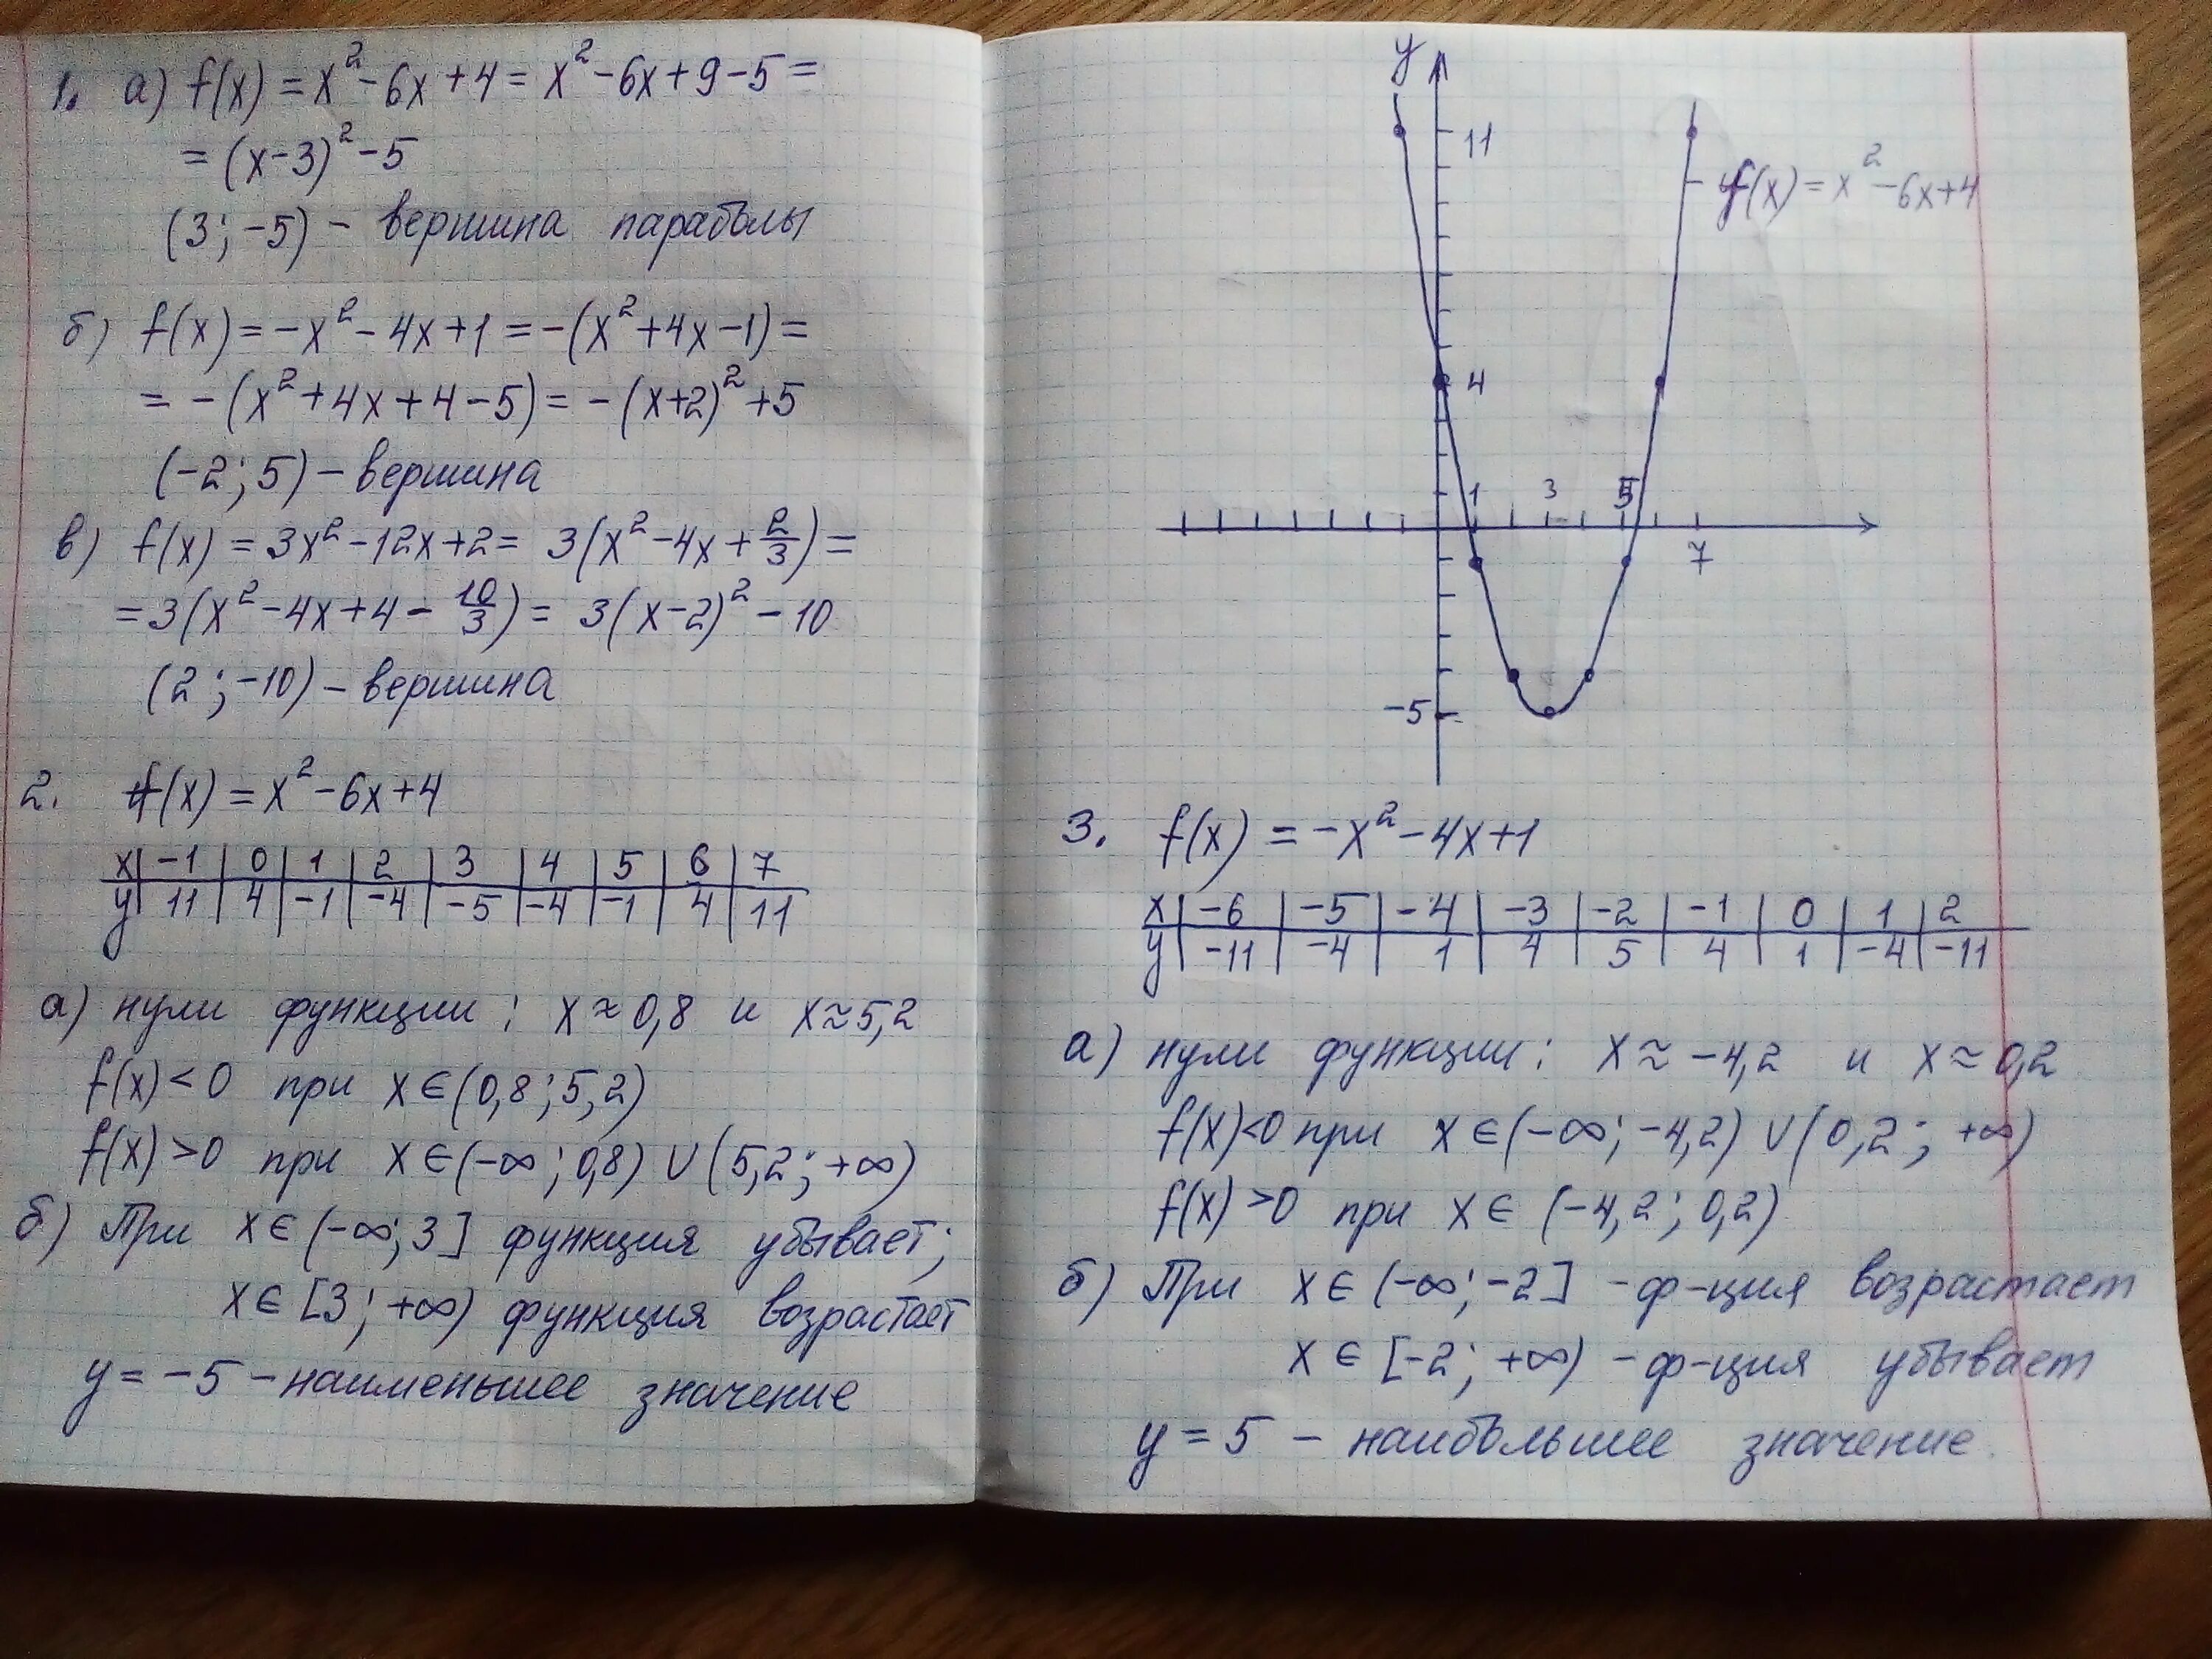 1. а) f(x) = x² - 6x + 4 = x² - 6x + 9 - 5 =
= (x-3)² - 5
(3; -5) - вершина параболы
б) f(x) = -x² - 4x + 1 = -(x² + 4x - 1) =
= -(x² + 4x + 4 - 5) = -(x+2)² + 5
(-2; 5) - вершина
в) f(x) = 3x² - 12x + 2 = 3(x² - 4x + 2/3) =
= 3(x² - 4x + 4 - 10/3) = 3(x-2)² - 10
(2; -10) - вершина
2. f(x) = x² - 6x + 4
x | -1 | 0 | 1 | 2 | 3 | 4 | 5 | 6 | 7
y | 11 | 4 | -1 | -4 | -5 | -4 | -1 | 4 | 11
а) нули функции: x ≈ 0,8 и x ≈ 5,2
f(x) < 0 при x ∈ (0,8; 5,2)
f(x) > 0 при x ∈ (-∞; 0,8) ∪ (5,2; +∞)
б) При x ∈ (-∞; 3] функция убывает;
x ∈ [3; +∞) функция возрастает
y = -5 - наименьшее значение
y
11
f(x) = x² - 6x + 4
4
1 3 5
7
-5
3. f(x) = -x² - 4x + 1
x | -6 | -5 | -4 | -3 | -2 | -1 | 0 | 1 | 2
y | -11 | -4 | 1 | 4 | 5 | 4 | 1 | -4 | -11
а) нули функции: x ≈ -4,2 и x ≈ 0,2
f(x) < 0 при x ∈ (-∞; -4,2) ∪ (0,2; +∞)
f(x) > 0 при x ∈ (-4,2; 0,2)
б) При x ∈ (-∞; -2] - ф-ция возрастает
x ∈ [-2; +∞) - ф-ция убывает
y = 5 - наибольшее значение.